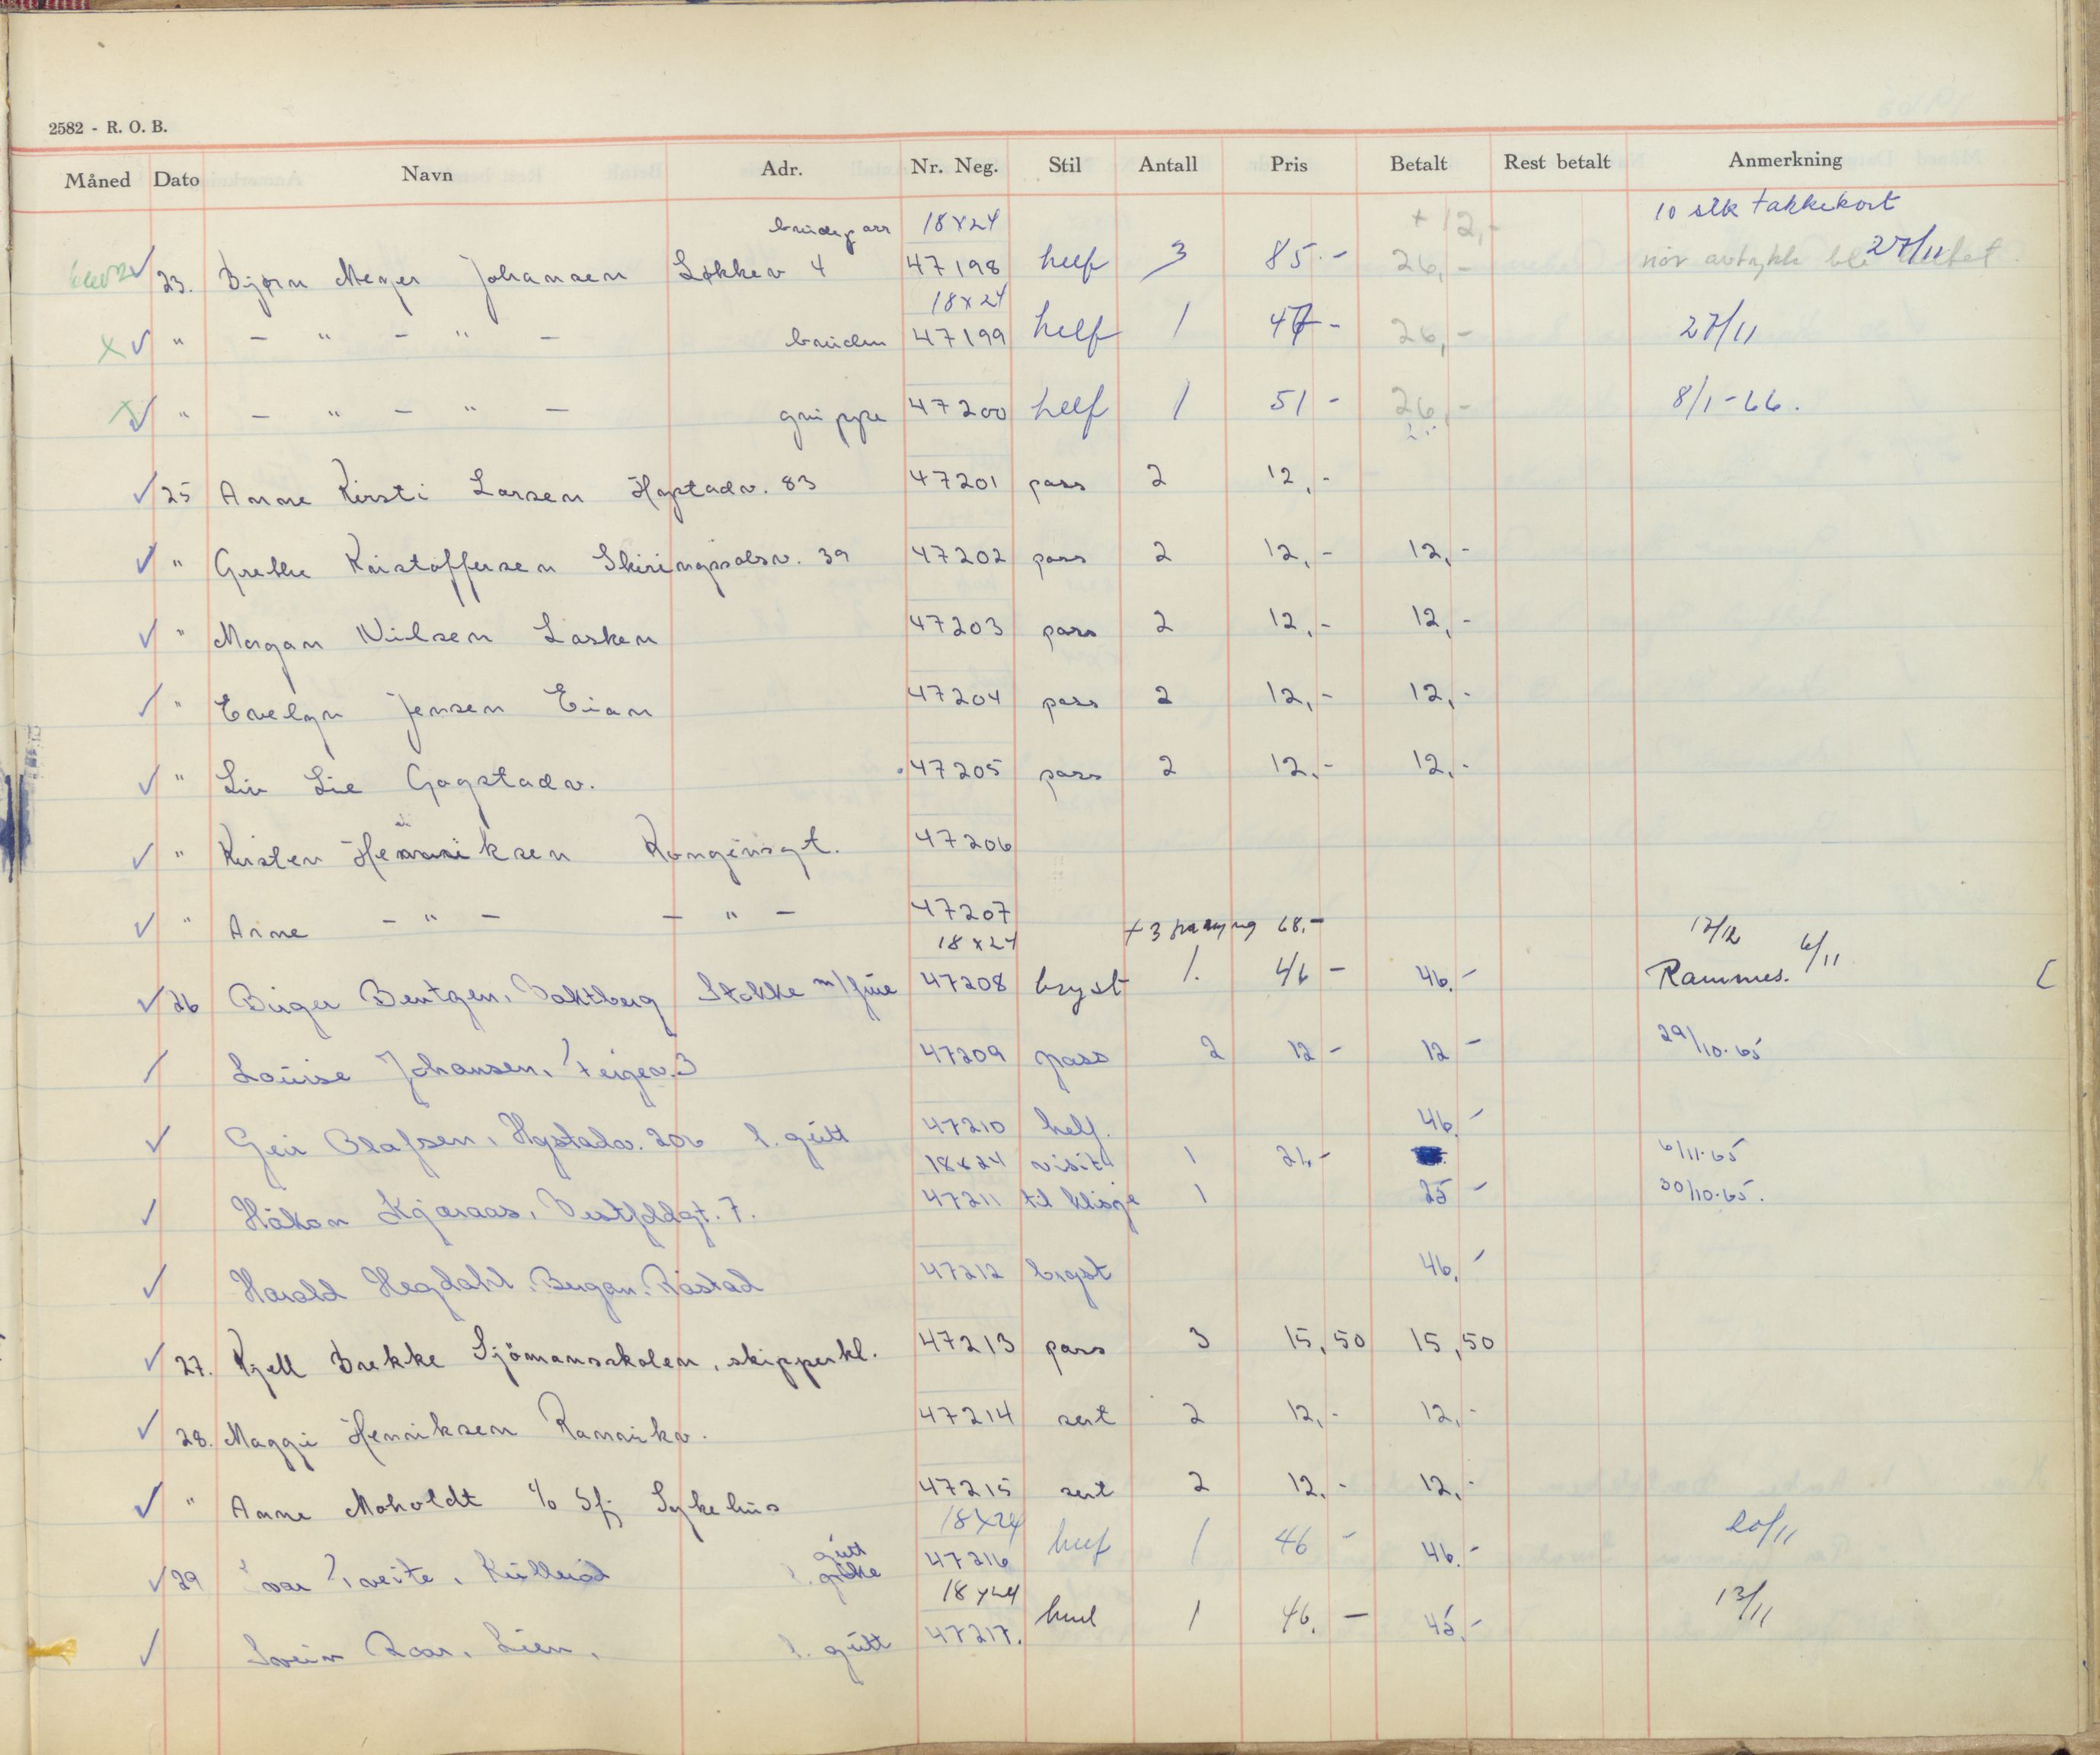 2582 - R. O. B.
Måned Dato Navn Adr. Nr. Neg. Stil Antall Pris Betalt Rest betalt Anmerkning
10 stk takkekort
brudepar 18x24 + 12,-
23. Bjørn Meyer Johansen Løkkev 4 47198 helf 3 85.- 26,- når avtrykk ble 27/11
18x24
" - " - " - bruden 47199 helf 1 47- 26,- 27/11
" - " - " - gruppe 47200 helf 1 51 - 26,- 8/1-66.
25 Anne Kirsti Larsen Hystadv. 83 47201 pass 2 12,-
" Grethe Kristoffersen Skiringssalsv. 39 47202 pass 2 12,- 12,-
" Morgan Nilsen Lasken 47203 pass 2 12,- 12,-
" Evelyn Jensen Eian 47204 pass 2 12,- 12,-
" Liv Lie Gogstadv. 47205 pass 2 12,- 12,-
" Kirsten Henriksen Kongensgt. 47206
" Arne - " - - " - 47207
18x24 + 3 68.- 12/12 6/11
26 Birger Bentzen, Stokke m/frue 47208 bryst 1. 46 - 46.- Rammes.
Louise Johansen, 47209 pass 2 12 - 12 - 29/10.65
Geir Olafsen, Hystadv. 20b l. gutt 47210 helf. 46.-
18x24 visit 1 21,- 6/11.65
Håkon Kjæraas, Vestfoldgt. 7. 47211 til klisje 1 25 - 30/10.65.
Harald Hegdahl, Bugan. Råstad 47212 bryst 46,-
27. Kjell Brekke Sjömansskolen, skipperkl. 47213 pass 3 15,50 15,50
28. Maggi Henriksen Ranvikv. 47214 sert 2 12,- 12,-
" Anne Moholdt c/o Sfj Sykehus 47215 sert 2 12,- 12,-
18x24
29 Ivar Tveite, Kullerød l. gutt 47216 helf 1 46 - 46.- 20/11
18x24
Svein Roar, Lien, l. gutt 47217. 1 46. - 45,- 13/11